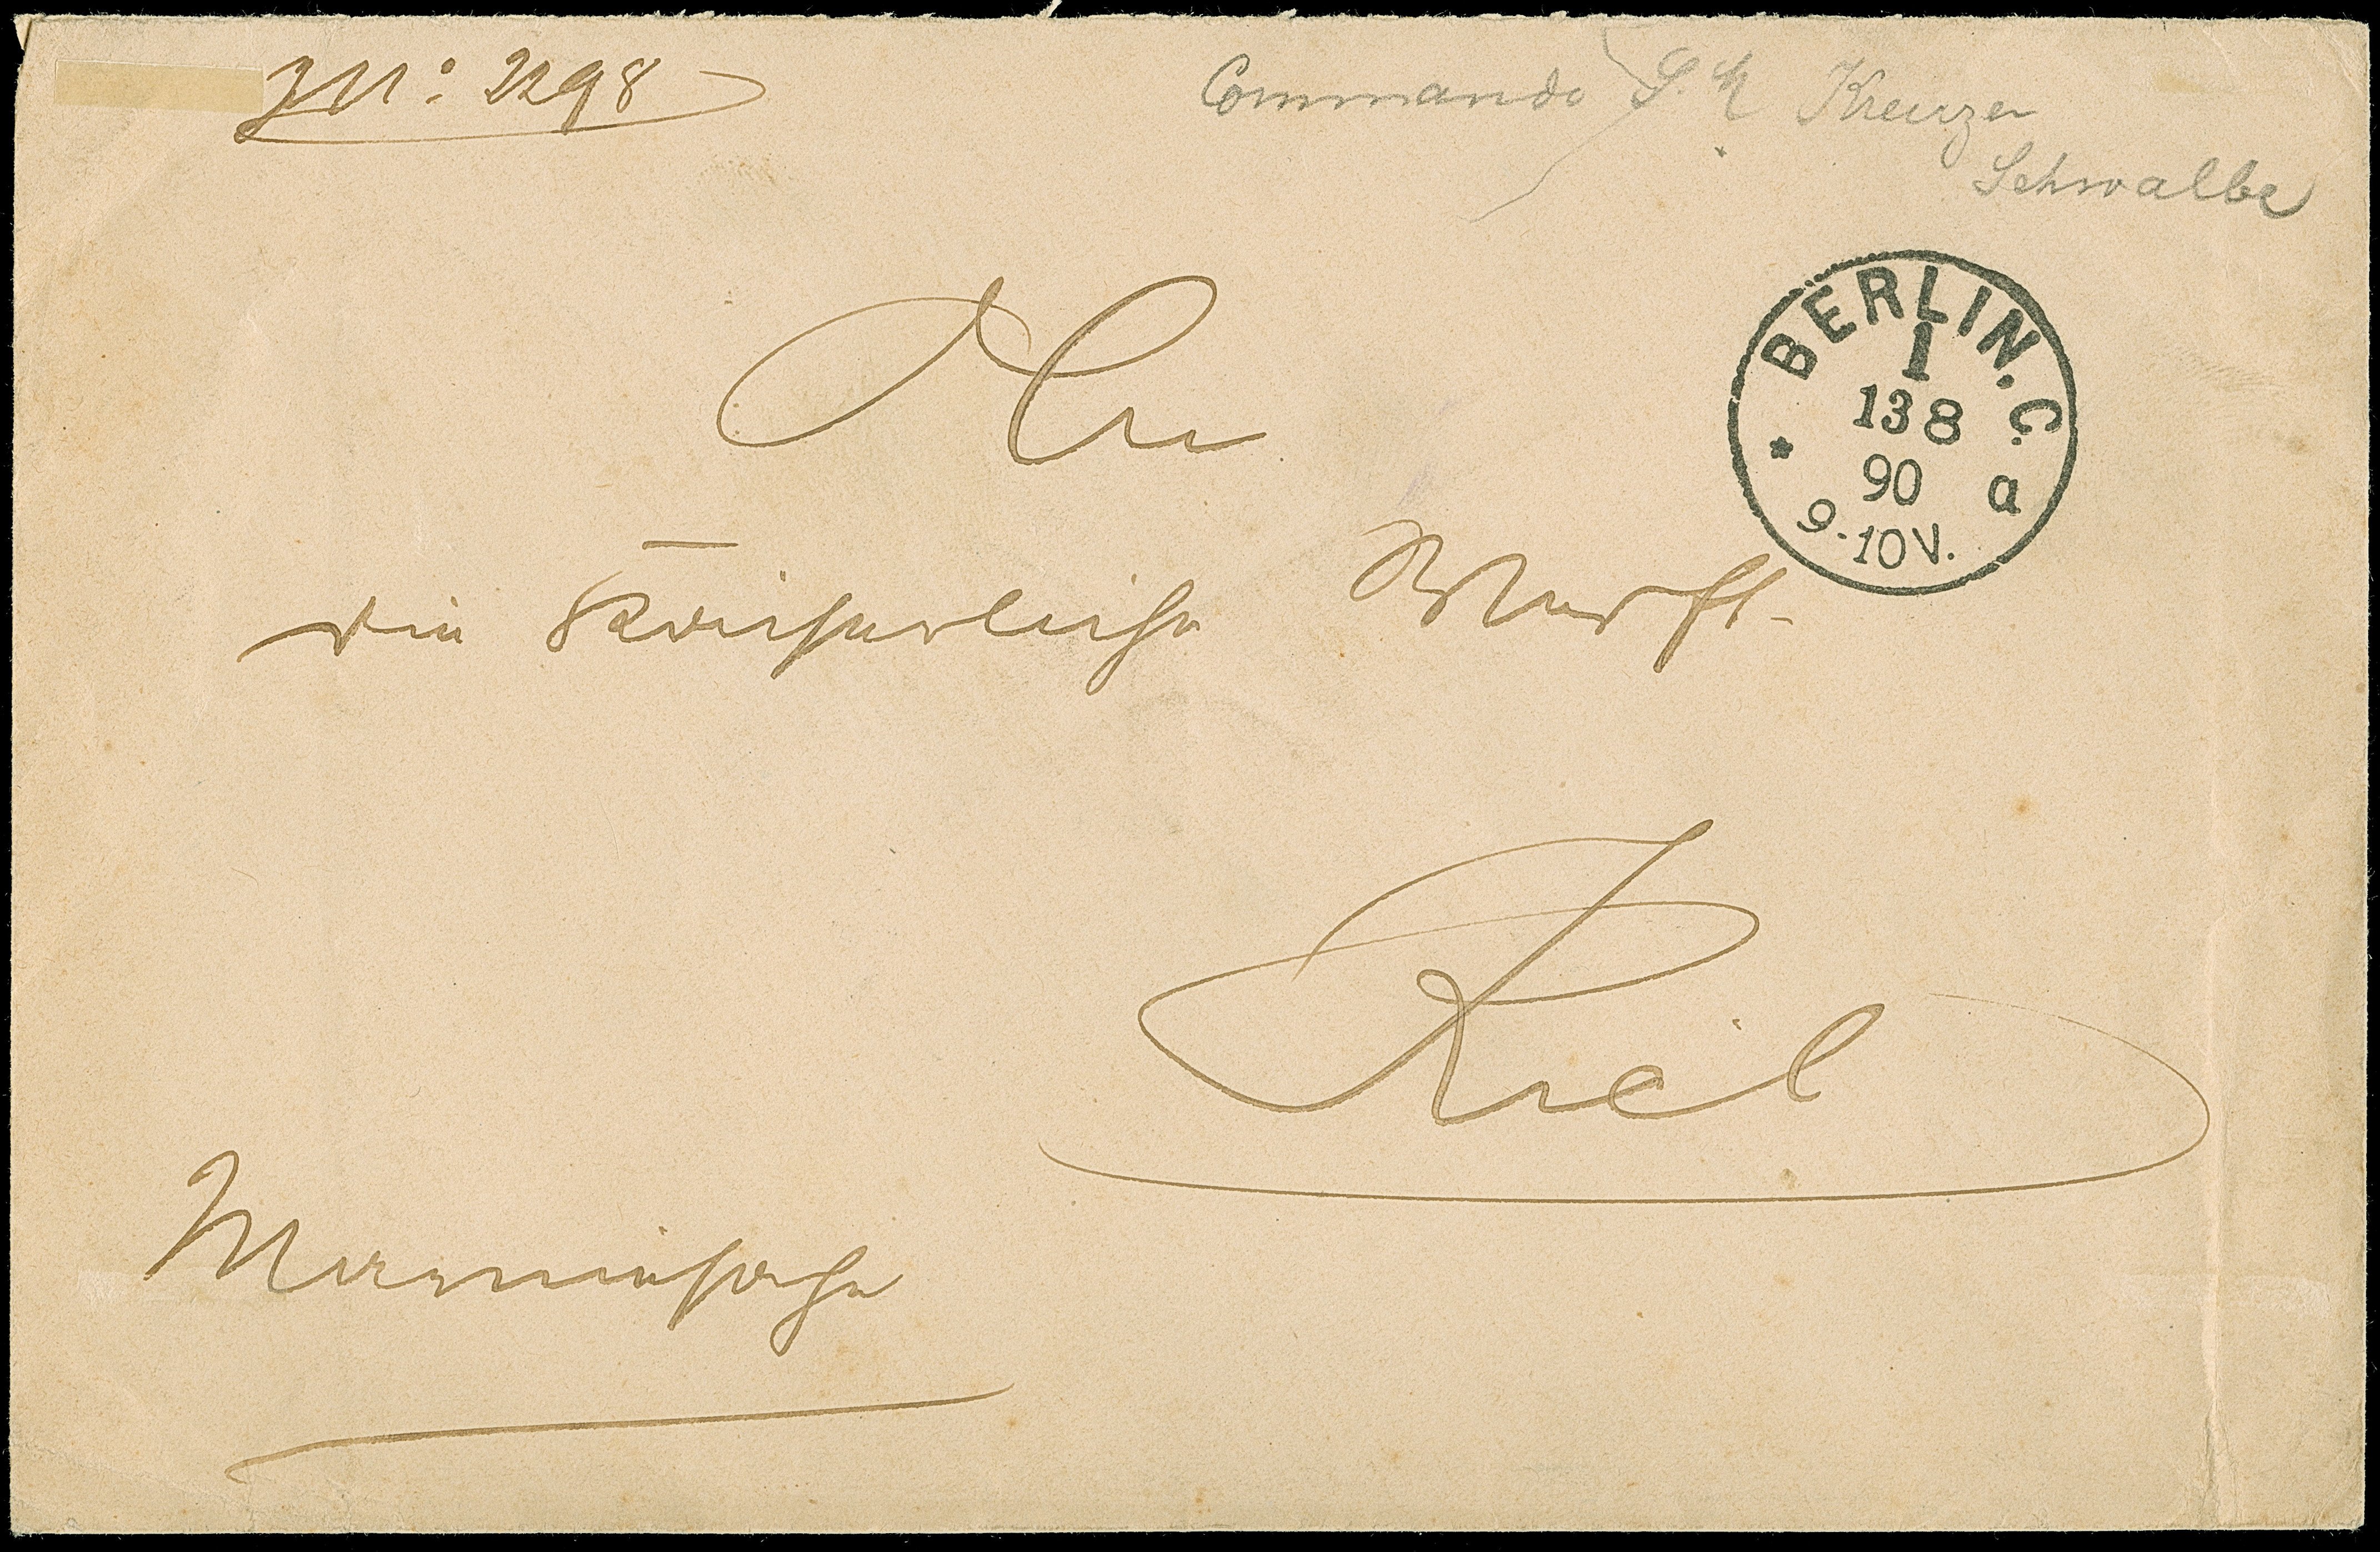 JN: 2298
Commando S. M. Kreuzer
Schwalbe
BERLIN. C.
1
13 8
90
a
9-10V.
An
die Kaiserliche Werft
Kiel
Marinesache